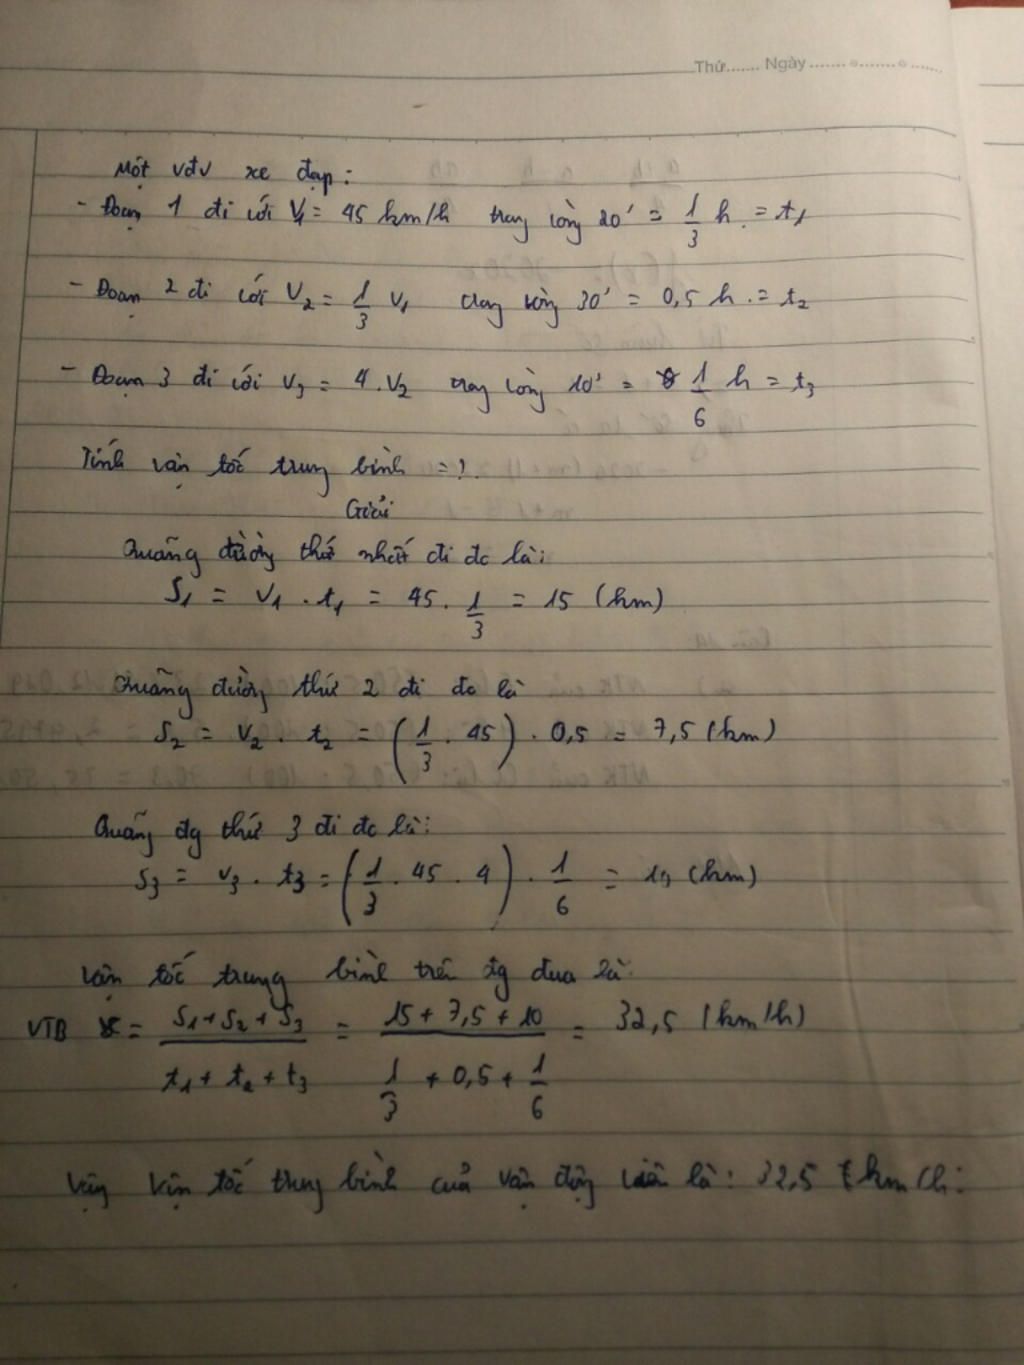 Thứ....... Ngày.......................
Một vđv xe đạp:
- Đoạn 1 đi với V1 = 45 km/h trong vòng 20' = 1/3 h = t1
- Đoạn 2 đi với V2 = 1/3 V1 trong vòng 30' = 0,5 h = t2
- Đoạn 3 đi với V3 = 4.V2 trong vòng 10' = 1/6 h = t3
Tính vận tốc trung bình = ?
Giải
Quãng đường thứ nhất đi đc là:
S1 = V1 . t1 = 45 . 1/3 = 15 (km)
Quãng đường thứ 2 đi đc là
S2 = V2 . t2 = (1/3 . 45) . 0,5 = 7,5 (km)
Quãng đg thứ 3 đi đc là:
S3 = V3 . t3 = (1/3 . 45 . 4) . 1/6 = 10 (km)
Vận tốc trung bình trên đg đua là:
VTB = (S1 + S2 + S3)/(t1 + t2 + t3) = (15 + 7,5 + 10)/(1/3 + 0,5 + 1/6) = 32,5 (km/h)
Vậy vận tốc trung bình của vận động viên là: 32,5 km/h.